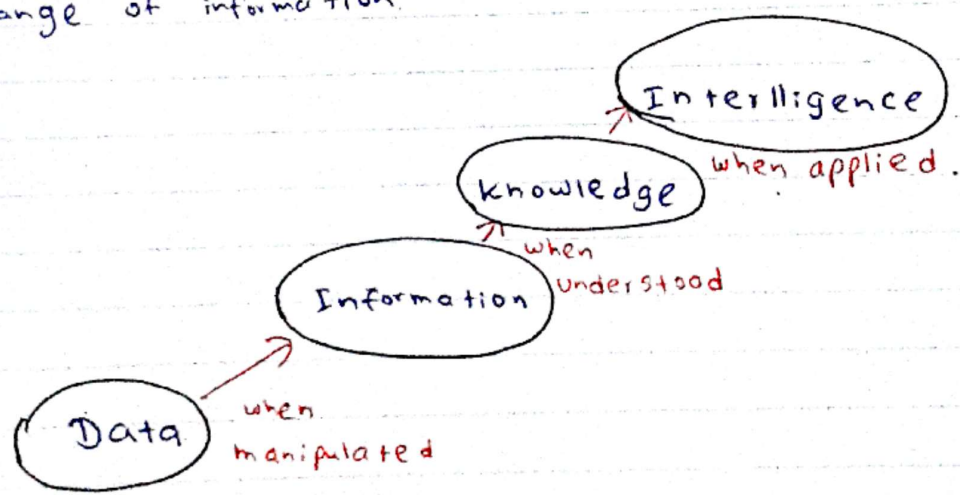 of information
Interlligence
when applied.
knowledge
when
understood
Information
Data
when
manipulated